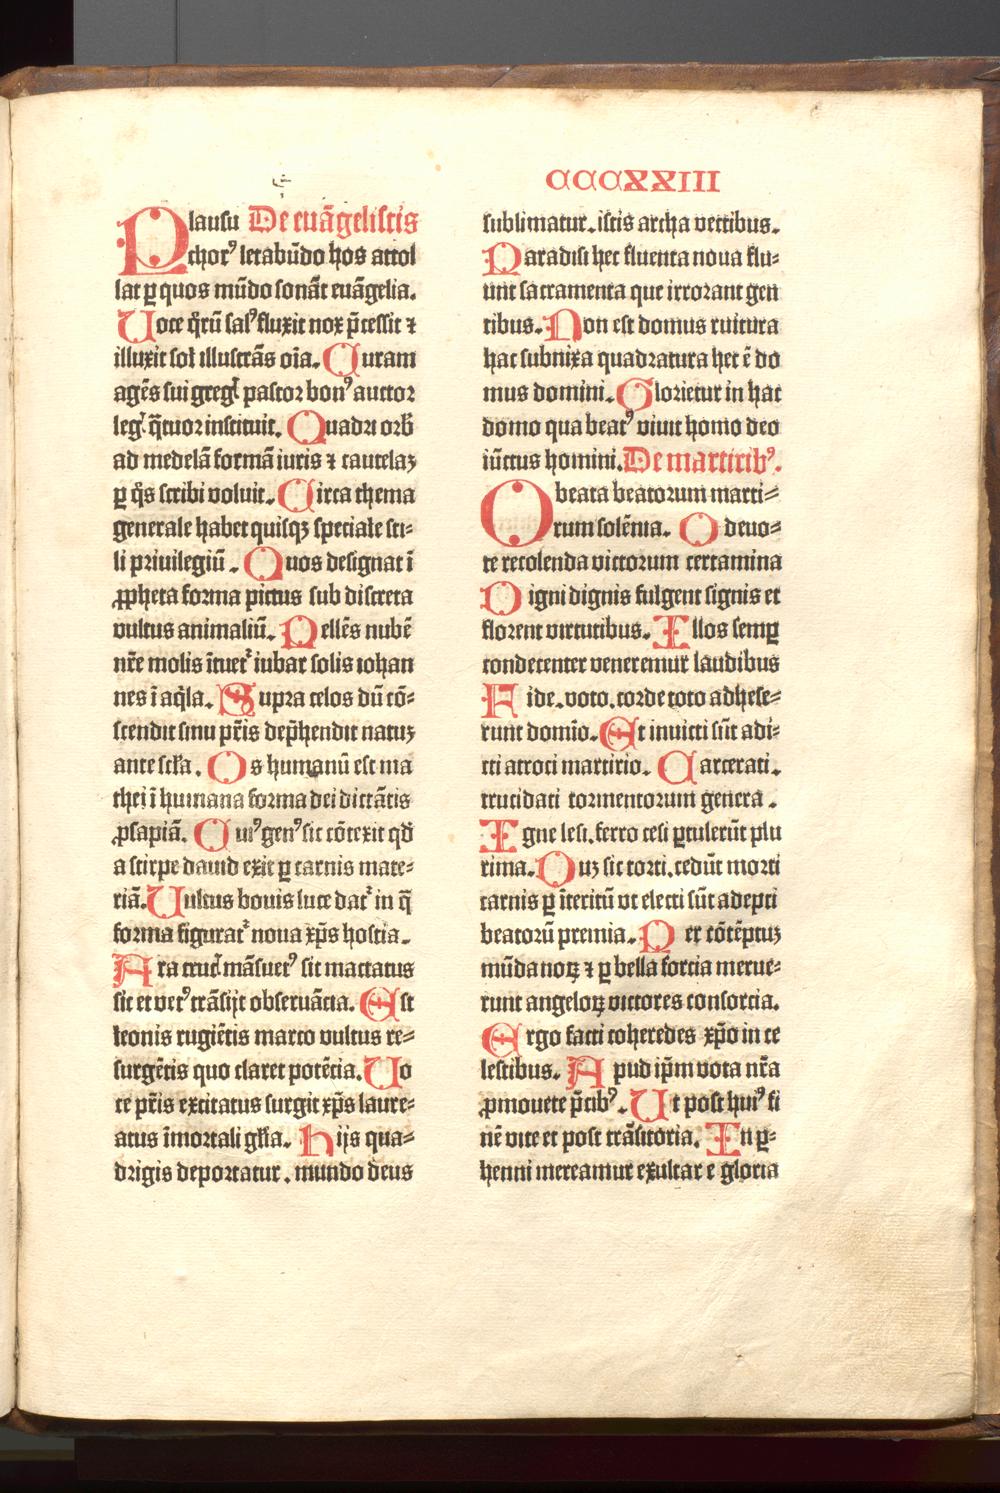 CCCXXIII
Plausu De euãgelistis
chorꝰ letabũdo hos attol
lat ꝑ quos mũdo sonãt euãgelia.
Uoce q̃rũ salꝰ fluxit nox p̃cessit ⁊
illuxit sol illustrãs oĩa. Curam
agẽs sui gregꝭ pastor bonꝰ auctor
legꝭ q̃tuor instituit. Quadri orb̃
ad medelã formã iuris ⁊ cautelaꝫ
ꝑ q̃s scribi voluit. Circa thema
generale habet quisqꝫ speciale sti-
li priuilegiũ. Quos designat ĩ
ꝓpheta forma pictus sub discreta
vultus animaliũ. Pellẽs nubẽ
nr̃e molis ĩtuet᷑ iubar solis iohan
nes ĩ aq̃la. Supra celos dũ cõ-
scendit sinu pr̃is dep̃hendit natuꝫ
ante scl̃a. Os humanũ est ma
thei ĩ humana forma dei dictãtis
ꝓsapiã. Cuiꝰ genꝰ sic cõtexit qd̃
a stirpe dauid exit ꝑ carnis mate-
riã. Uultus bouis luce dat᷑ in q̃
forma figurat᷑ noua xp̃s hostia.
Ara crucꝭ mãsuetꝰ sic mactatus
sic et vetꝰ trãsijt obseruãcia. Est
leonis rugiẽtis marco vultus re-
surgẽtis quo claret potẽcia. Uo
ce pr̃is excitatus surgit xp̃s laure-
atus ĩmortali gl̃ia. Hijs qua-
drigis deportatur. mundo deus
sublimatur. istis archa vectibus.
Paradisi hec fluenta noua flu-
unt sacramenta que irrorant gen
tibus. Non est domus ruitura
hac subnixa quadratura hec ẽ do
mus domini. Glorietur in hac
domo qua beatꝰ viuit homo deo
iũctus homini. De martiribꝰ.
O beata beatorum marti-
rum solẽnia. O deuo-
te recolenda victorum certamina
Digni dignis fulgent signis et
florent virtutibus. Illos semꝑ
condecenter veneremur laudibus
Fide. voto. corde toto adhese-
runt domĩo. Et inuicti sũt adi-
cti atroci martirio. Carcerati.
trucidati tormentorum genera.
Igne lesi. ferro cesi ꝑtulerũt plu
rima. Duꝫ sic torti. cedũt morti
carnis ꝑ ĩteritũ vt electi sũt adepti
beatorũ premia. Per cõtẽptuꝫ
mũdanoꝝ ⁊ ꝑ bella forcia merue-
runt angeloꝝ victores consorcia.
Ergo facti coheredes xp̃o in ce
lestibus. Apud ip̃m vota nr̃a
ꝓmouete p̃cibꝰ. Ut post huiꝰ fi
nẽ vite et post trãsitoria. In ꝑ-
henni mereamur exultare gloria